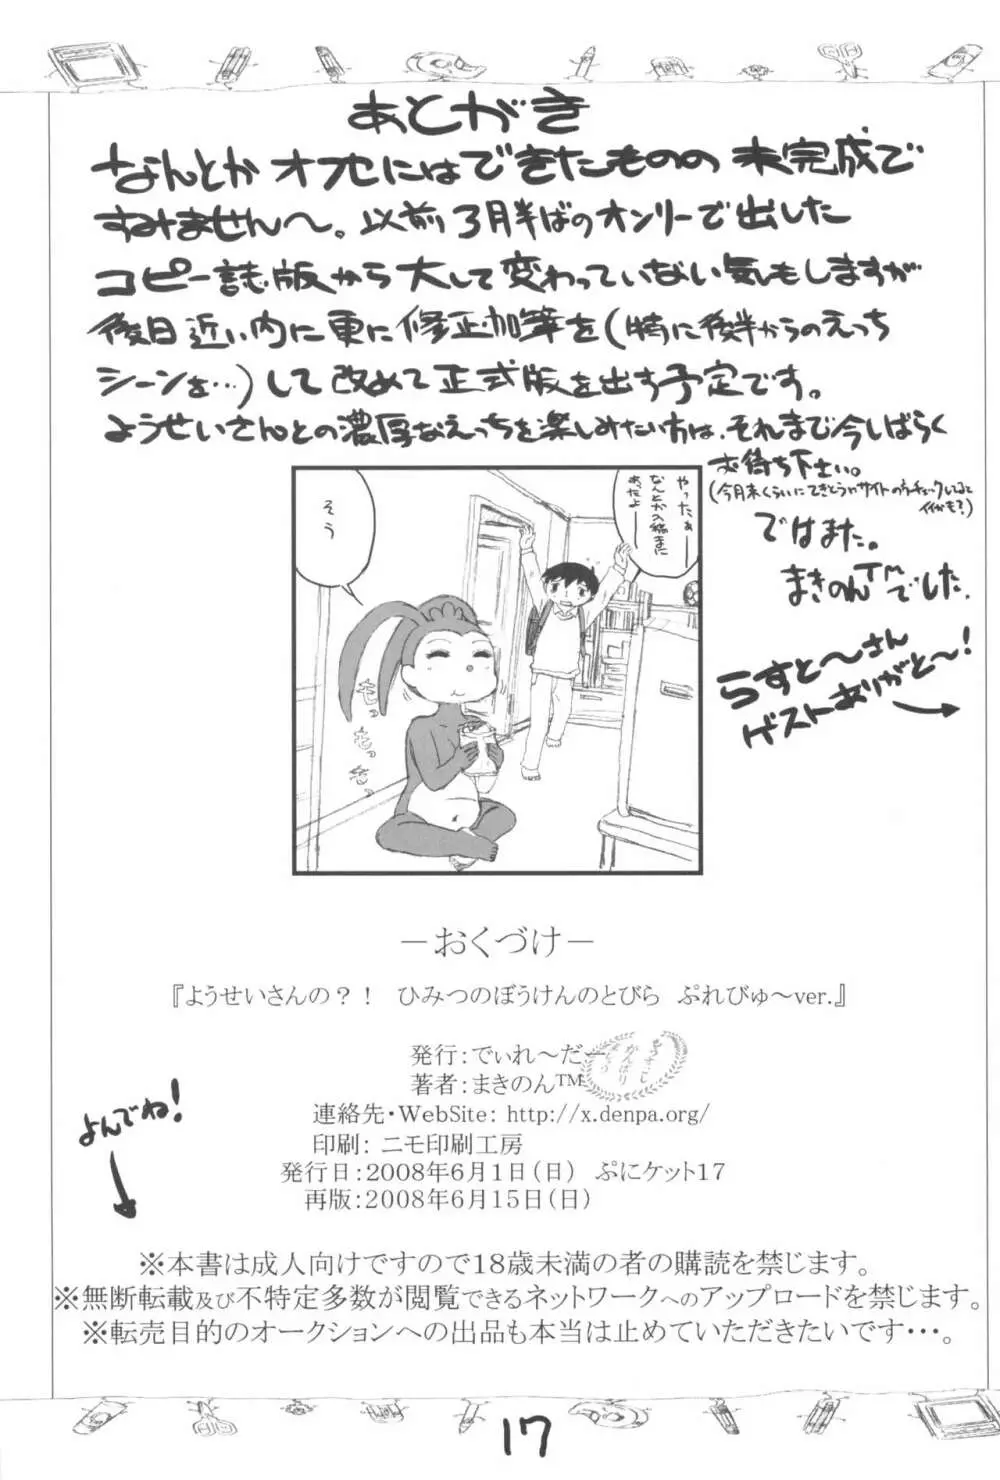 あとがき
なんとかオフセにはできたものの 未完成で
すみません〜。以前3月半ばのオンリーで出した
コピー誌版から大して変わっていない気もしますが
後日近い内に更に修正加筆を(特に後半からのえっち
シーンを…)して改めて正式版を出す予定です。
ようせいさんとの濃厚なえっちを楽しみたい方は、それまで今しばらく
お待ち下さい。
(今月末くらいにてきとうにサイトの方チェックしてると
イイかも?)
ではまた。
まきのんTMでした。
らすと〜さん
ゲストありがと〜!
やったぁー
なんとか入稿まに
あったよー
そう
もっ
もっ
もっ
－おくづけ－
『ようせいさんの？！ ひみつのぼうけんのとびら ぷれびゅ～ver.』
発行：でぃれ～だー
著者：まきのん™
連絡先・WebSite： http://x.denpa.org/
印刷： ニモ印刷工房
発行日：2008年6月1日（日） ぷにケット17
再版：2008年6月15日（日）
よんでね!
※本書は成人向けですので18歳未満の者の購読を禁じます。
※無断転載及び不特定多数が閲覧できるネットワークへのアップロードを禁じます。
※転売目的のオークションへの出品も本当は止めていただきたいです・・・。
17